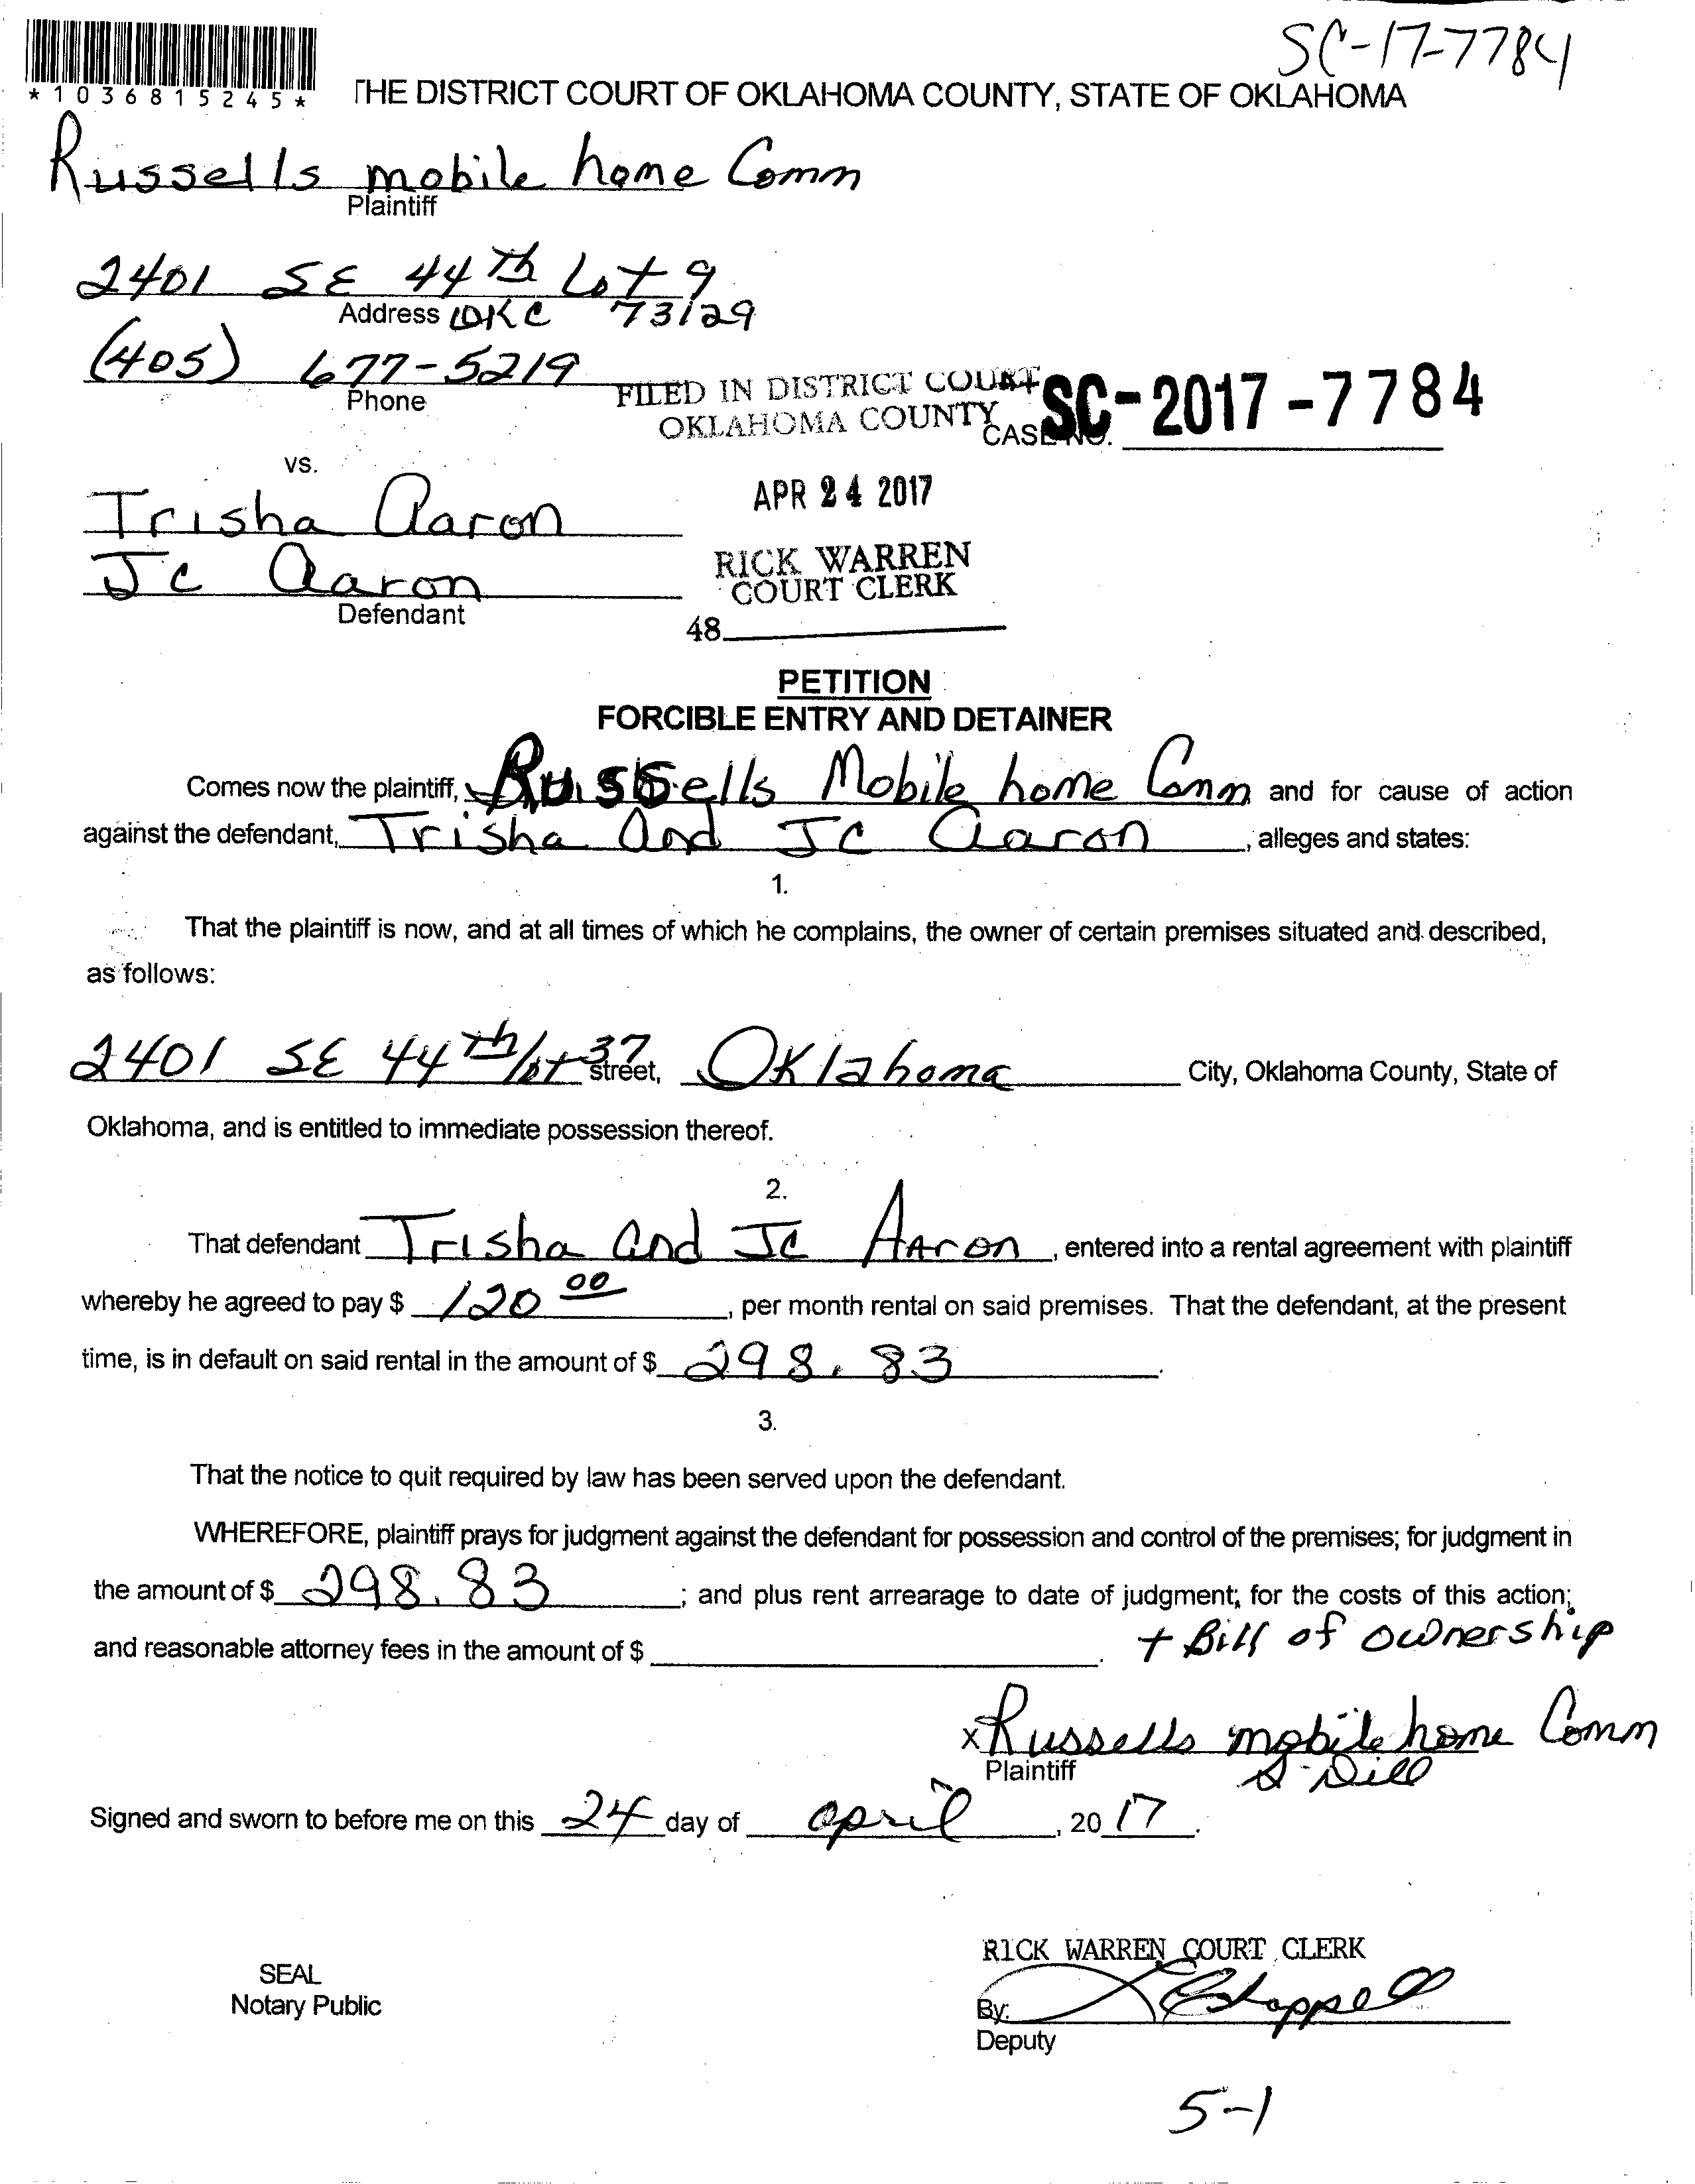 SC-17-7784
*1036815245*
THE DISTRICT COURT OF OKLAHOMA COUNTY, STATE OF OKLAHOMA
Russells mobile home Comm
Plaintiff
2401 SE 44th Lot 9
Address OKC 73129
(405) 677-5219
Phone
FILED IN DISTRICT COURT
OKLAHOMA COUNTY
CASE NO. SC-2017-7784
vs.
APR 24 2017
Trisha Aaron
Jc Aaron
Defendant
RICK WARREN
COURT CLERK
48
PETITION
FORCIBLE ENTRY AND DETAINER
Comes now the plaintiff, Russells Mobile home Comm and for cause of action
against the defendant, Trisha and JC Aaron, alleges and states:
1.
That the plaintiff is now, and at all times of which he complains, the owner of certain premises situated and described,
as follows:
2401 SE 44th lot 37 street, Oklahoma City, Oklahoma County, State of
Oklahoma, and is entitled to immediate possession thereof.
2.
That defendant Trisha and Jc Aaron, entered into a rental agreement with plaintiff
whereby he agreed to pay $ 120 00, per month rental on said premises. That the defendant, at the present
time, is in default on said rental in the amount of $ 298.83.
3.
That the notice to quit required by law has been served upon the defendant.
WHEREFORE, plaintiff prays for judgment against the defendant for possession and control of the premises; for judgment in
the amount of $ 298.83; and plus rent arrearage to date of judgment; for the costs of this action;
and reasonable attorney fees in the amount of $ . + Bill of ownership
x Russells mobile home Comm
Plaintiff S Dill
Signed and sworn to before me on this 24 day of april, 20 17.
RICK WARREN COURT CLERK
SEAL
Notary Public
By: Chappell
Deputy
5-1